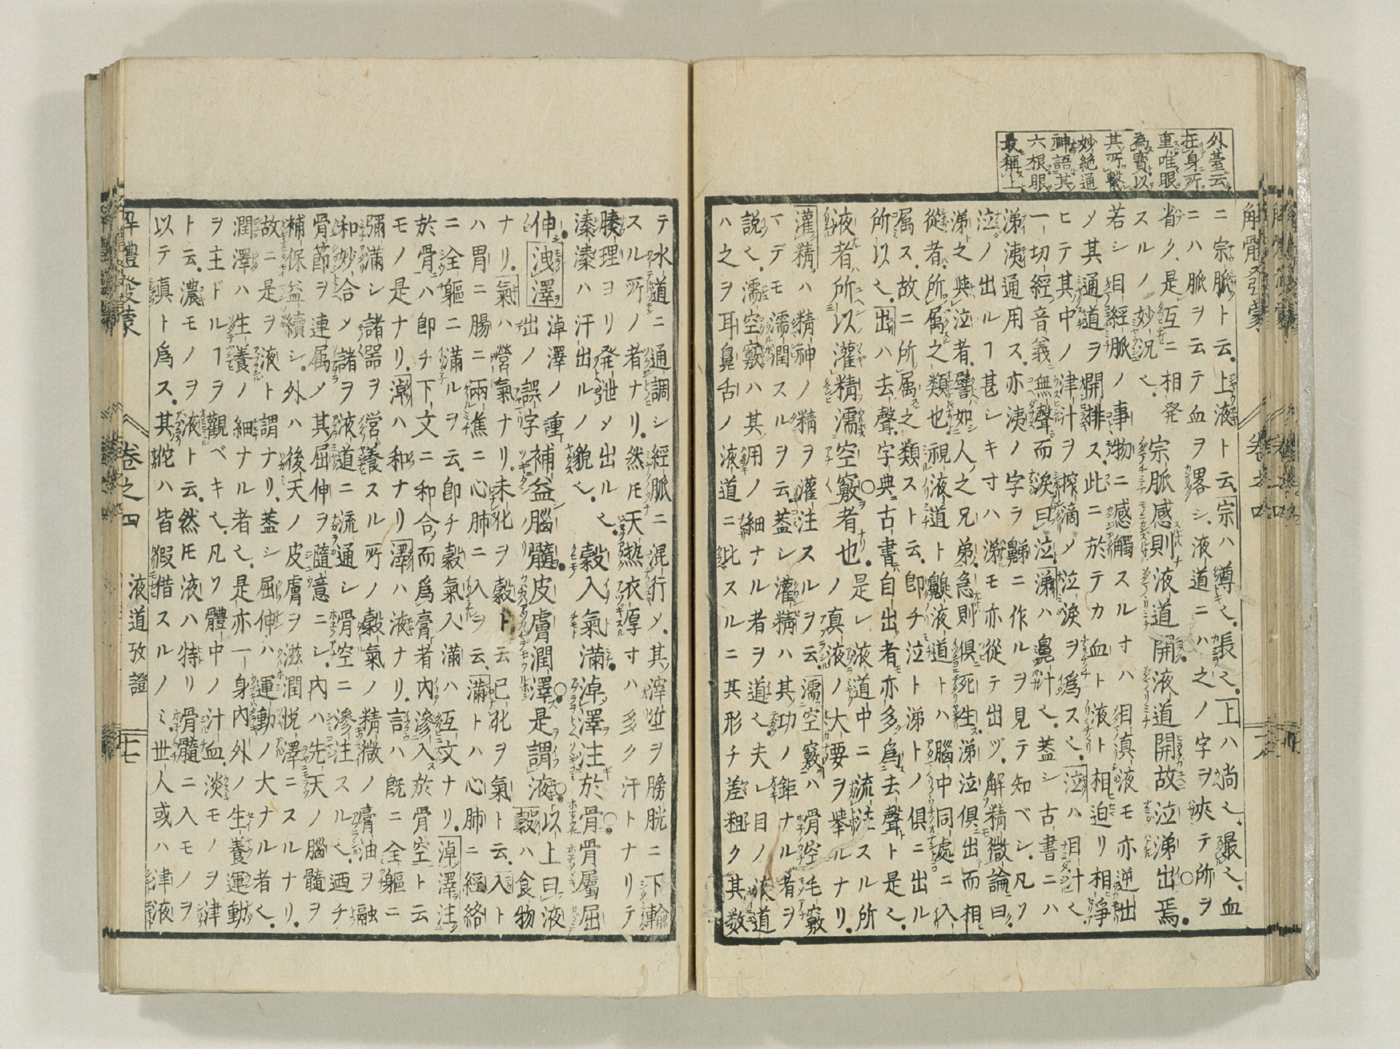 外䑓云
在身所
重唯眼
為寳以
其所繫
妙絶通
神語其
六根眼
最稱上
ニ宗脈ト云上液ト云宗ハ尊也長也上ハ尚也最也血
ニハ脈ヲ云テ血ヲ畧シ液道ニハ之ノ字ヲ挾テ所ヲ
省ク是互ニ相発
スルノ妙况也
宗脈感則液道開液道開故泣涕出焉
若シ目經脈ノ事物ニ感觸スルオハ目真液モ亦逆出
ノ其通道ヲ開排ス此ニ於テカ血ト液ト相迫リ相爭
ヒテ其中ノ津汁ヲ搾滴メ泣淚ヲ爲ス也泣ハ目汁也
一切經音義無聲而淚曰泣涕ハ鼻汁也蓋シ古書ニハ
涕洟通用ス亦洟ノ字ヲ鮷ニ作ルヲ見テ知ベシ凡ソ
泣ノ出ルヿ甚シキオハ涕モ亦從テ出ヅ解精微論曰
涕之與泣者譬如人之兄弟急則俱死生涕泣俱出而相
從者所属之類也視液道ト齅液道トハ腦中同處ニ入
属ス故ニ所属之類ストE云即チ泣ト涕トノ俱ニ出ル
所以也出ハ去聲字典古書自出者亦多爲去聲ト是也
液者所以灌精濡空竅者也是レ液道中ニ流注スル所
灌精ハ精神ノ精ヲ灌注スルヲ云濡空竅ハ骨空毛竅
マデモ濡潤スルヲ云蓋シ灌精ハ其功ノ鉅ナル者ヲ
説也濡空竅ハ其用ノ細ナル者ヲ道也夫レ目ノ液道
ハ之ヲ耳鼻舌ノ液道ニ比スルニ其形チ差粗ク其数
テ水道ニ通調シ經脈ニ混行メ其滓垽ヲ膀胱ニ下輸
スル所ノ者ナリ然氏天熱衣厚オハ多ク汗トナリテ
腠理ヨリ発泄メ出ル也
溱溱ハ汗出ルノ貌也
穀入氣滿淖澤注於骨骨屬屈
伸洩澤
淖澤ノ重
出ノ誤字
補益腦髓皮膚潤澤是謂液
以上曰液
穀ハ食物
ナリ氣ハ營氣ナリ未化ヲ穀ト云已化ヲ氣ト云入ト
ハ胃ニ腸ニ兩焦ニ心肺ニ入ヲ云滿トハ心肺ニ經絡
ニ全軀ニ滿ルヲ云即チ穀氣入滿ハ互文ナリ淖澤注
於骨ハ即チ下文ニ和合而爲膏者內滲入於骨空ト云
モノ是ナリ淖ハ和ナリ澤ハ液ナリ言ハ既ニ全軀ニ
彌滿シ諸器ヲ營養スル所ノ穀氣ノ精微ノ膏油ヲ融
和妙合メ諸ヲ液道ニ流通シ骨空ニ滲注スル也迺チ
骨節ヲ連属メ其屈伸ヲ隨意ニシ內ハ先天ノ腦髓ヲ
補保益續シ外ハ後天ノ皮膚ヲ滋潤悦澤ニスルナリ
故ニ是ヲ液ト謂ナリ蓋シ屈伸ハ運動ノ大ナル者也
潤澤ハ生養ノ細ナル者也是亦一身內外ノ生養運動
ヲ主ドルヿヲ觀ベキ也凡ソ體中ノ汁血淡モノヲ津
ト云濃モノヲ液ト云然氏液ハ特リ骨髓ニ入モノヲ
以テ真トE爲ス其佗ハ皆猳借スルノミ世人或ハ津液
解體發蒙 卷之四 液道攷證 十七